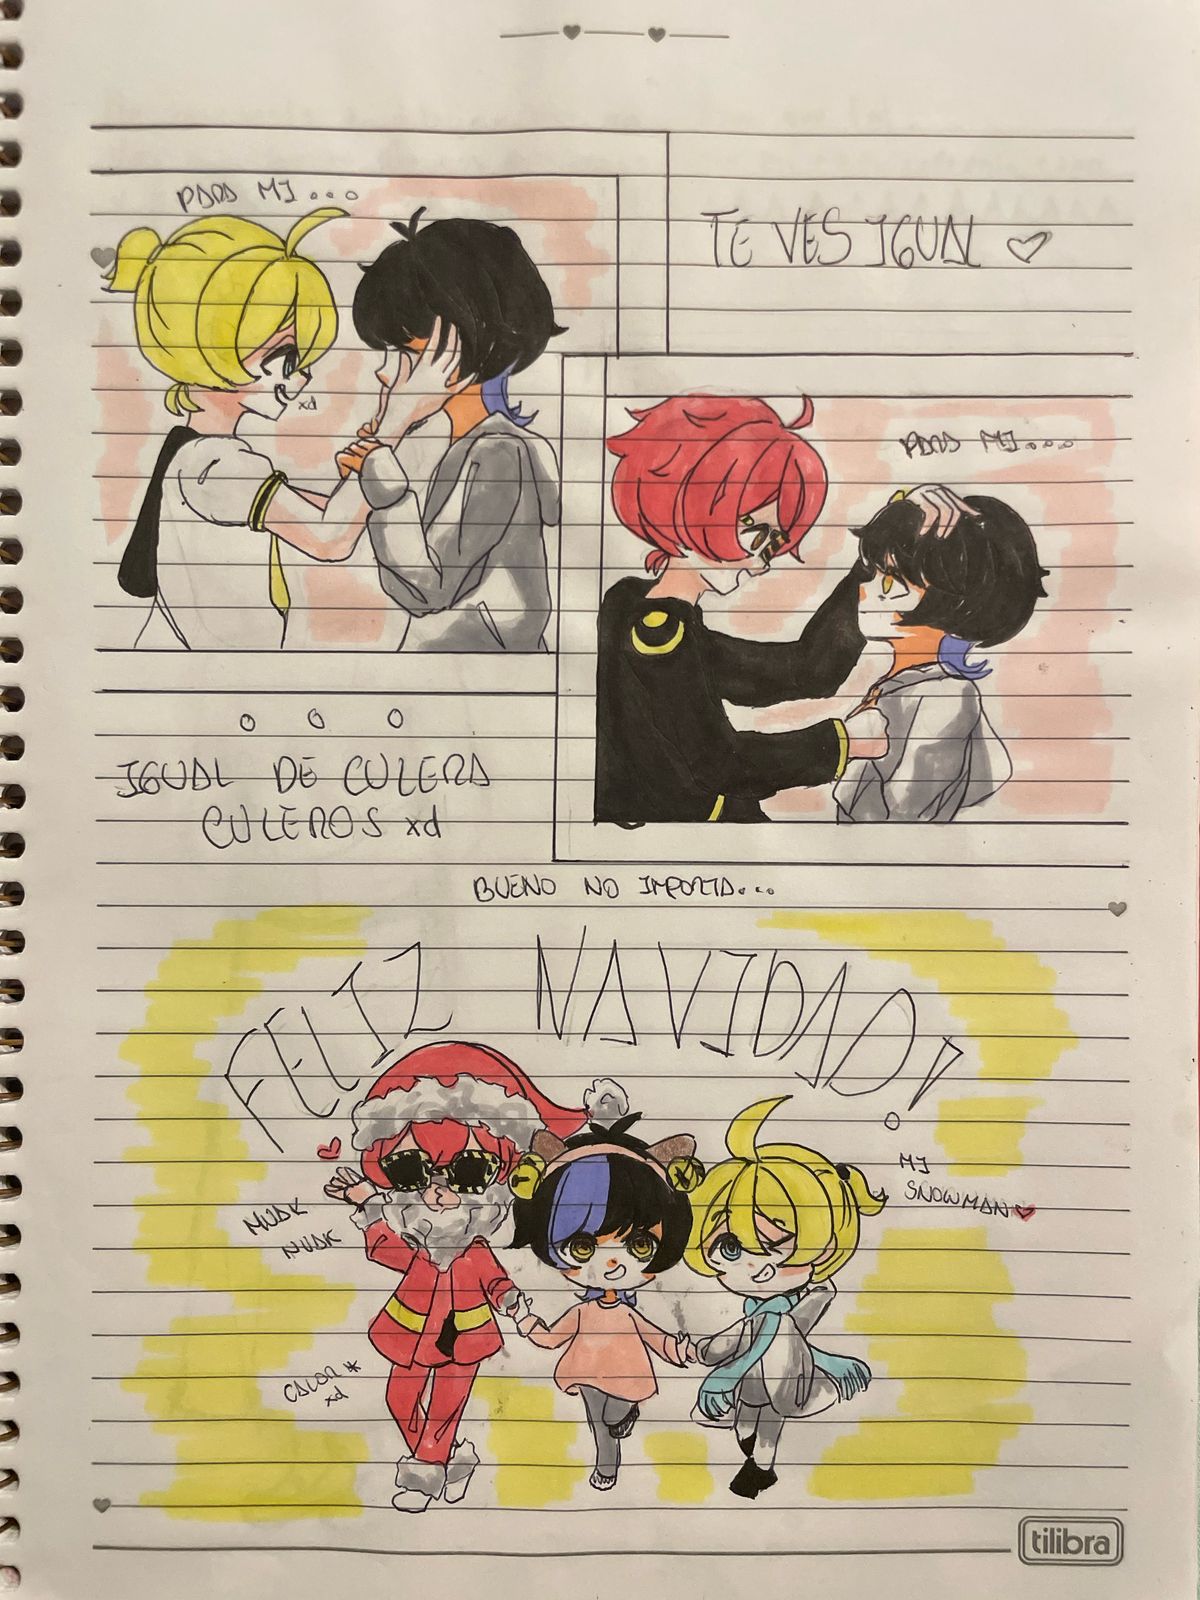 PARA MI...
TE VES IGUAL
xd
PARA MI....
IGUAL DE CULERA
CULEROS xd
BUENO NO IMPORTA...
FELIZ NAVIDAD!
MI
SNOWMAN
MUAK
MUAK
CALOR *
xd
tilibra